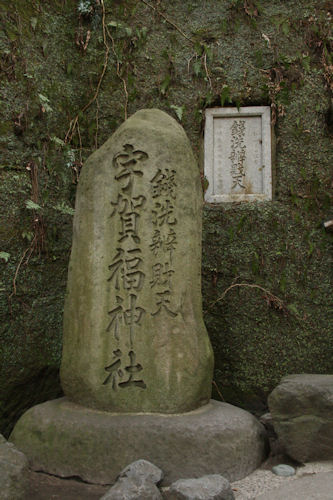 銭洗辨財天
宇賀福神社
銭洗辨天